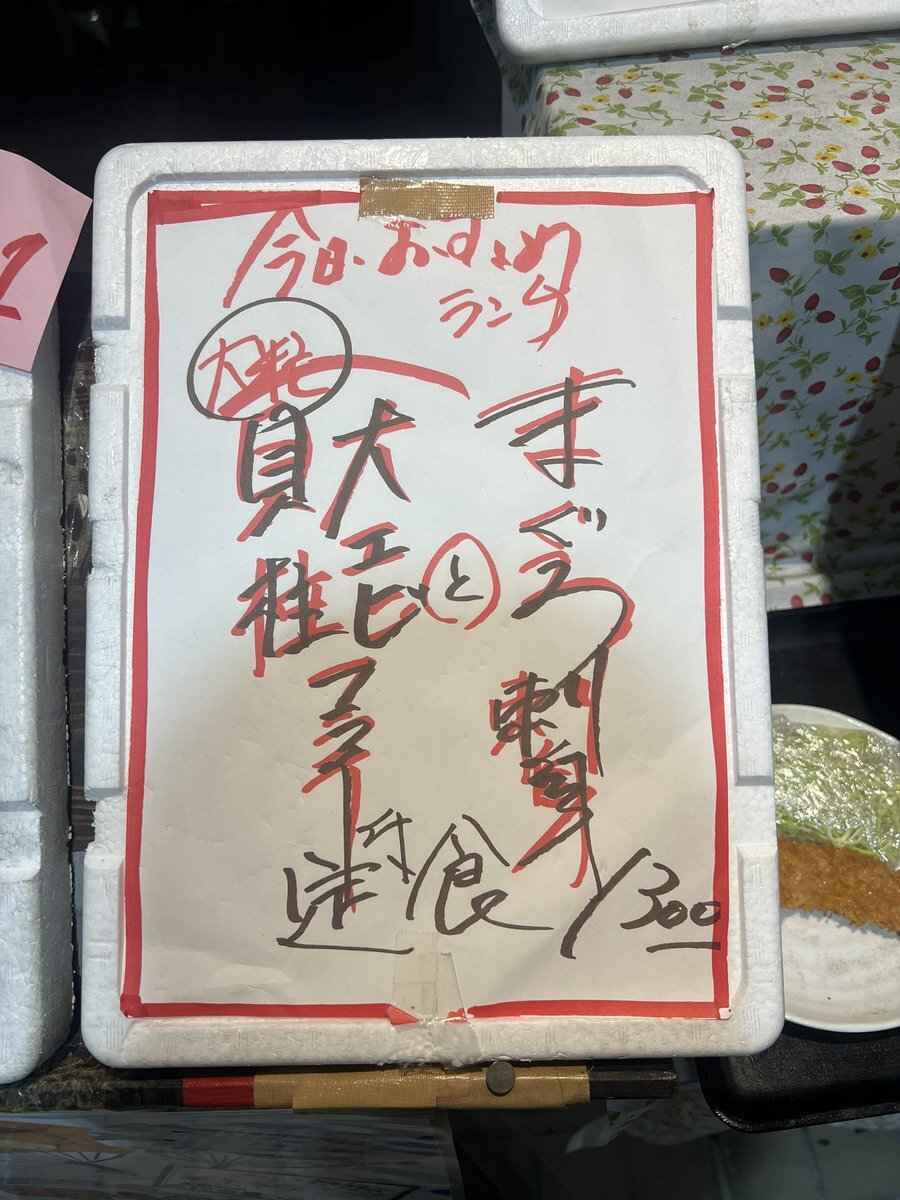 今日のおすすめ
ランチ
まぐろ刺身
と
大エビフライ付
大判
貝柱
定食
1300